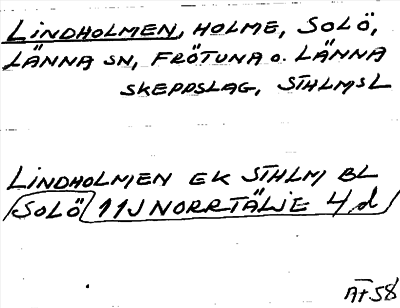 LINDHOLMEN, HOLME, SOLÖ,
LÄNNA SN, FRÖTUNA O. LÄNNA
SKEPPSLAG, STHLMSL
LINDHOLMEN EK STHLM BL
SOLÖ 11J NORRTÄLJE 4d
ÄT58